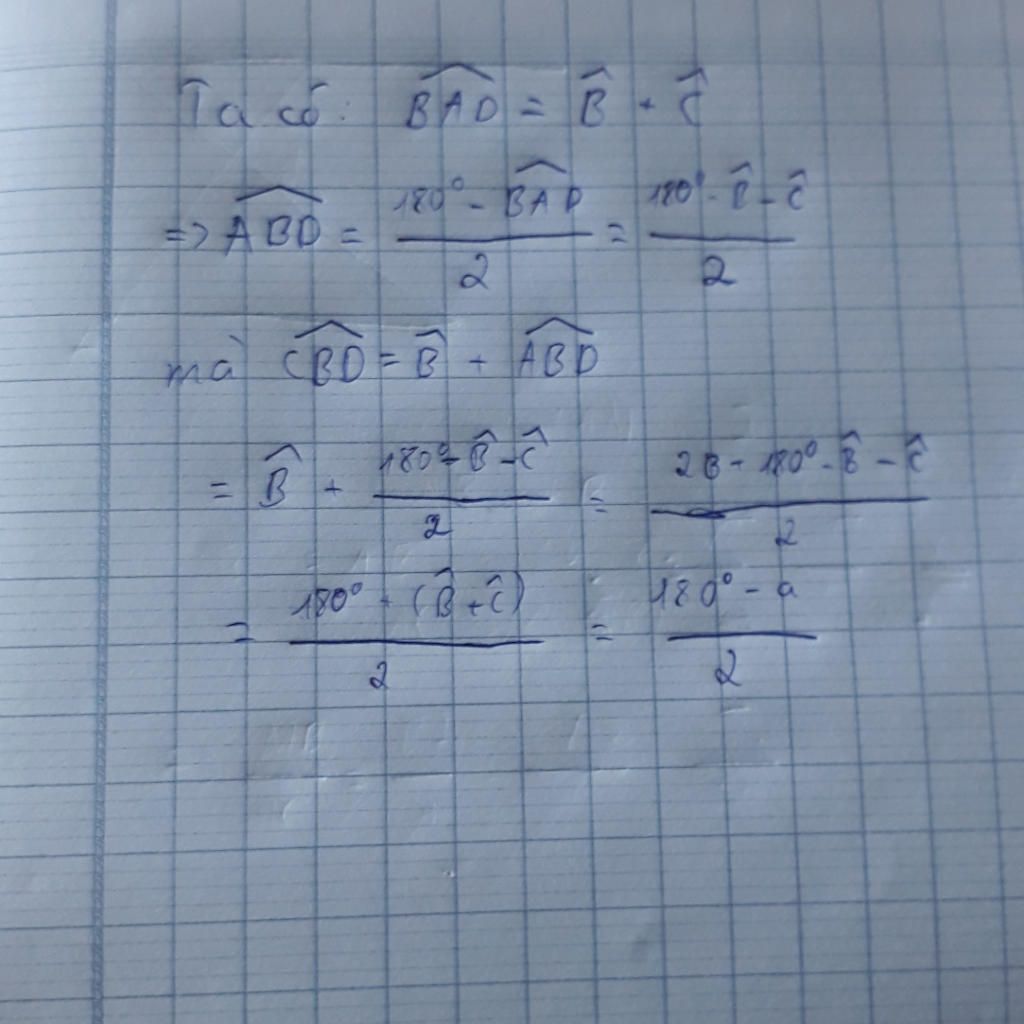 Ta có: \widehat{BAD} = \widehat{B} + \widehat{C}
=> \widehat{ABD} = \frac{180° - \widehat{BAD}}{2} = \frac{180° - \widehat{B} - \widehat{C}}{2}
mà \widehat{CBD} = \widehat{B} + \widehat{ABD}
= \widehat{B} + \frac{180° - \widehat{B} - \widehat{C}}{2} = \frac{2B + 180° - \widehat{B} - \widehat{C}}{2}
= \frac{180° + (\widehat{B} + \widehat{C})}{2} = \frac{180° - a}{2}